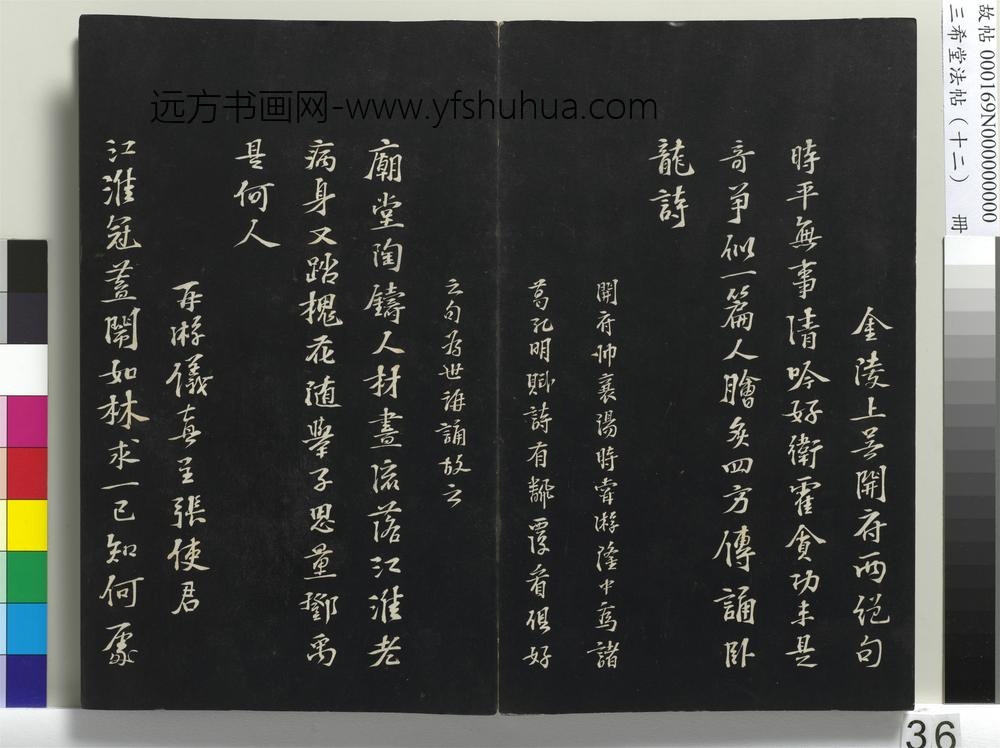 故帖 000169N000000000
三希堂法帖(十二) 册
远方书画网-www.yfshuhua.com
金陵上吴開府两絕句
時平無事清吟好衛霍貪功未是
奇爭似一篇人膾炙四方傳誦卧
龍詩
開府帥襄陽時嘗游隆中為諸
葛孔明賦詩有翻覆看俱好
之句為世誨誦故云
廟堂陶鑄人材盡流落江淮老
病身又踏槐花随舉子思量鄧禹
是何人
再游儀真呈張使君
江淮冠蓋鬧如林求一已知何處
36